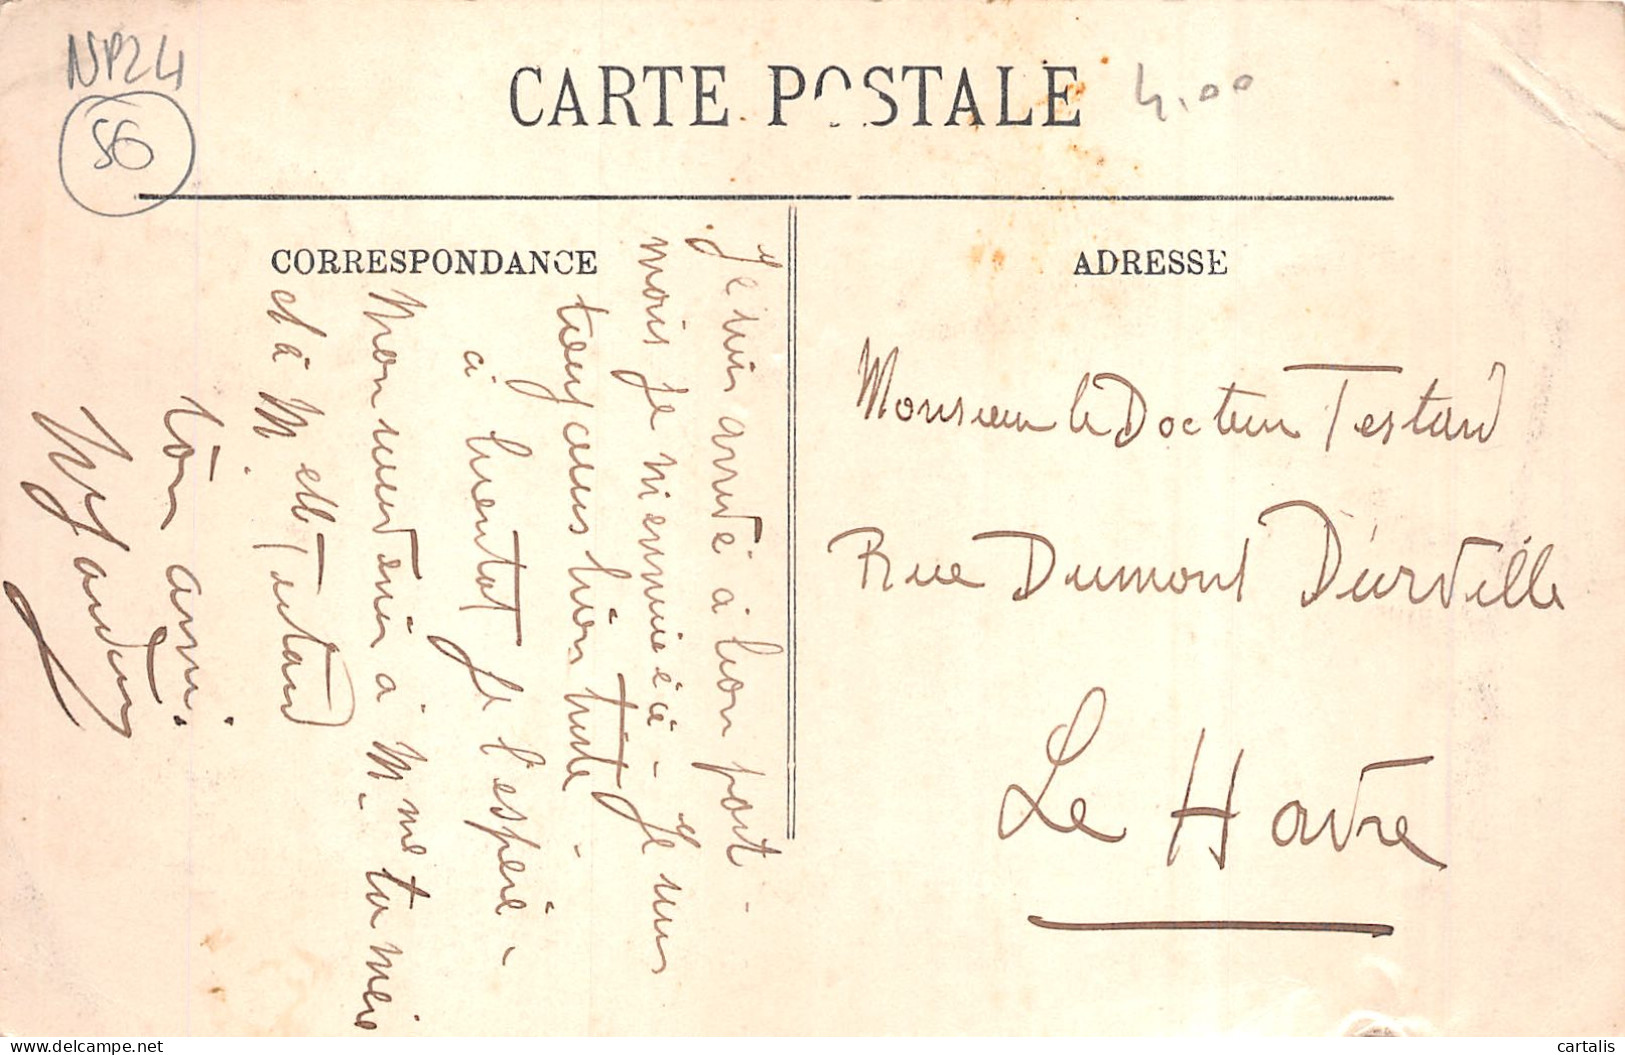 NP24
56
CARTE POSTALE
4.00
CORRESPONDANCE
Je suis arrivé à bon port -
mais je m'ennuie ici - Je suis
toujours bien triste -
à bientôt je l'espère -
Mon souvenir à Mme ta mère
et à Melle Testard
ton ami.
ADRESSE
Monsieur le Docteur Testard
Rue Dumont Durville
Le Havre
delcampe.net
cartalis